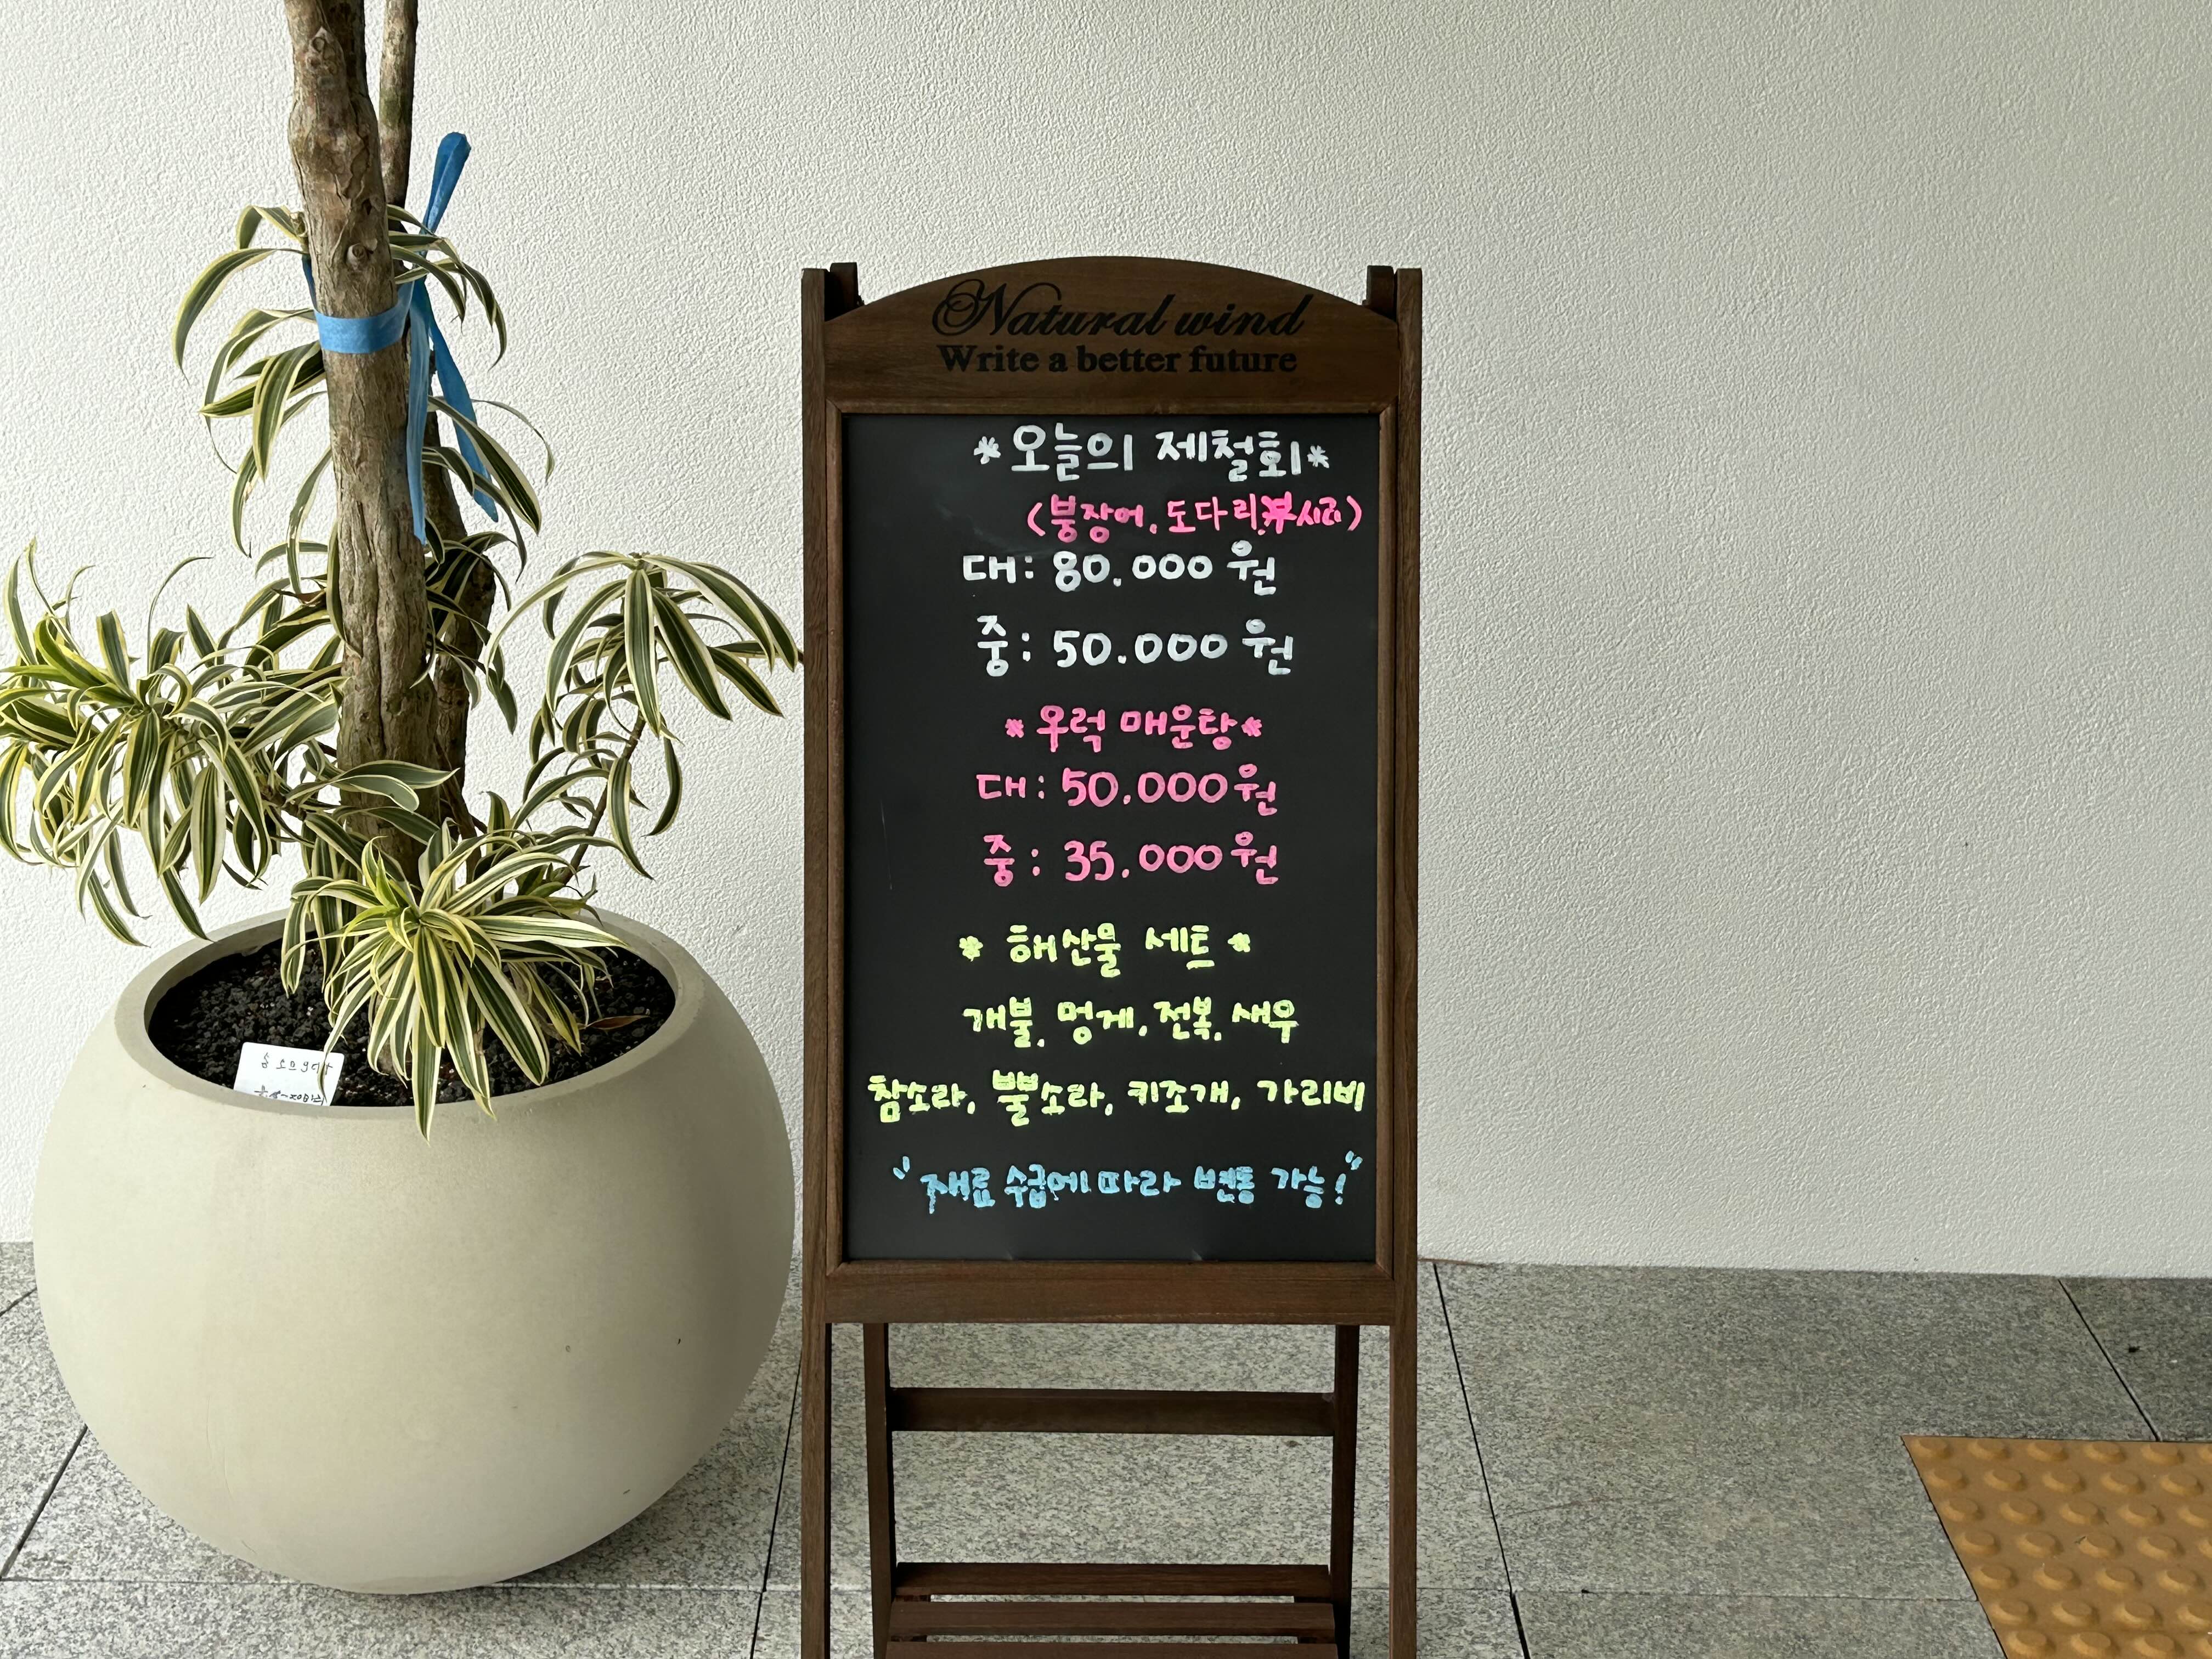 Natural wind
Write a better future
*오늘의 제철회*
(붕장어, 도다리, 부시리)
대: 80.000원
중: 50.000원
*우럭 매운탕*
대: 50.000원
중: 35.000원
* 해산물 세트 *
개불, 멍게, 전복, 새우
참소라, 뿔소라, 키조개, 가리비
"재료 수급에 따라 변동 가능!"